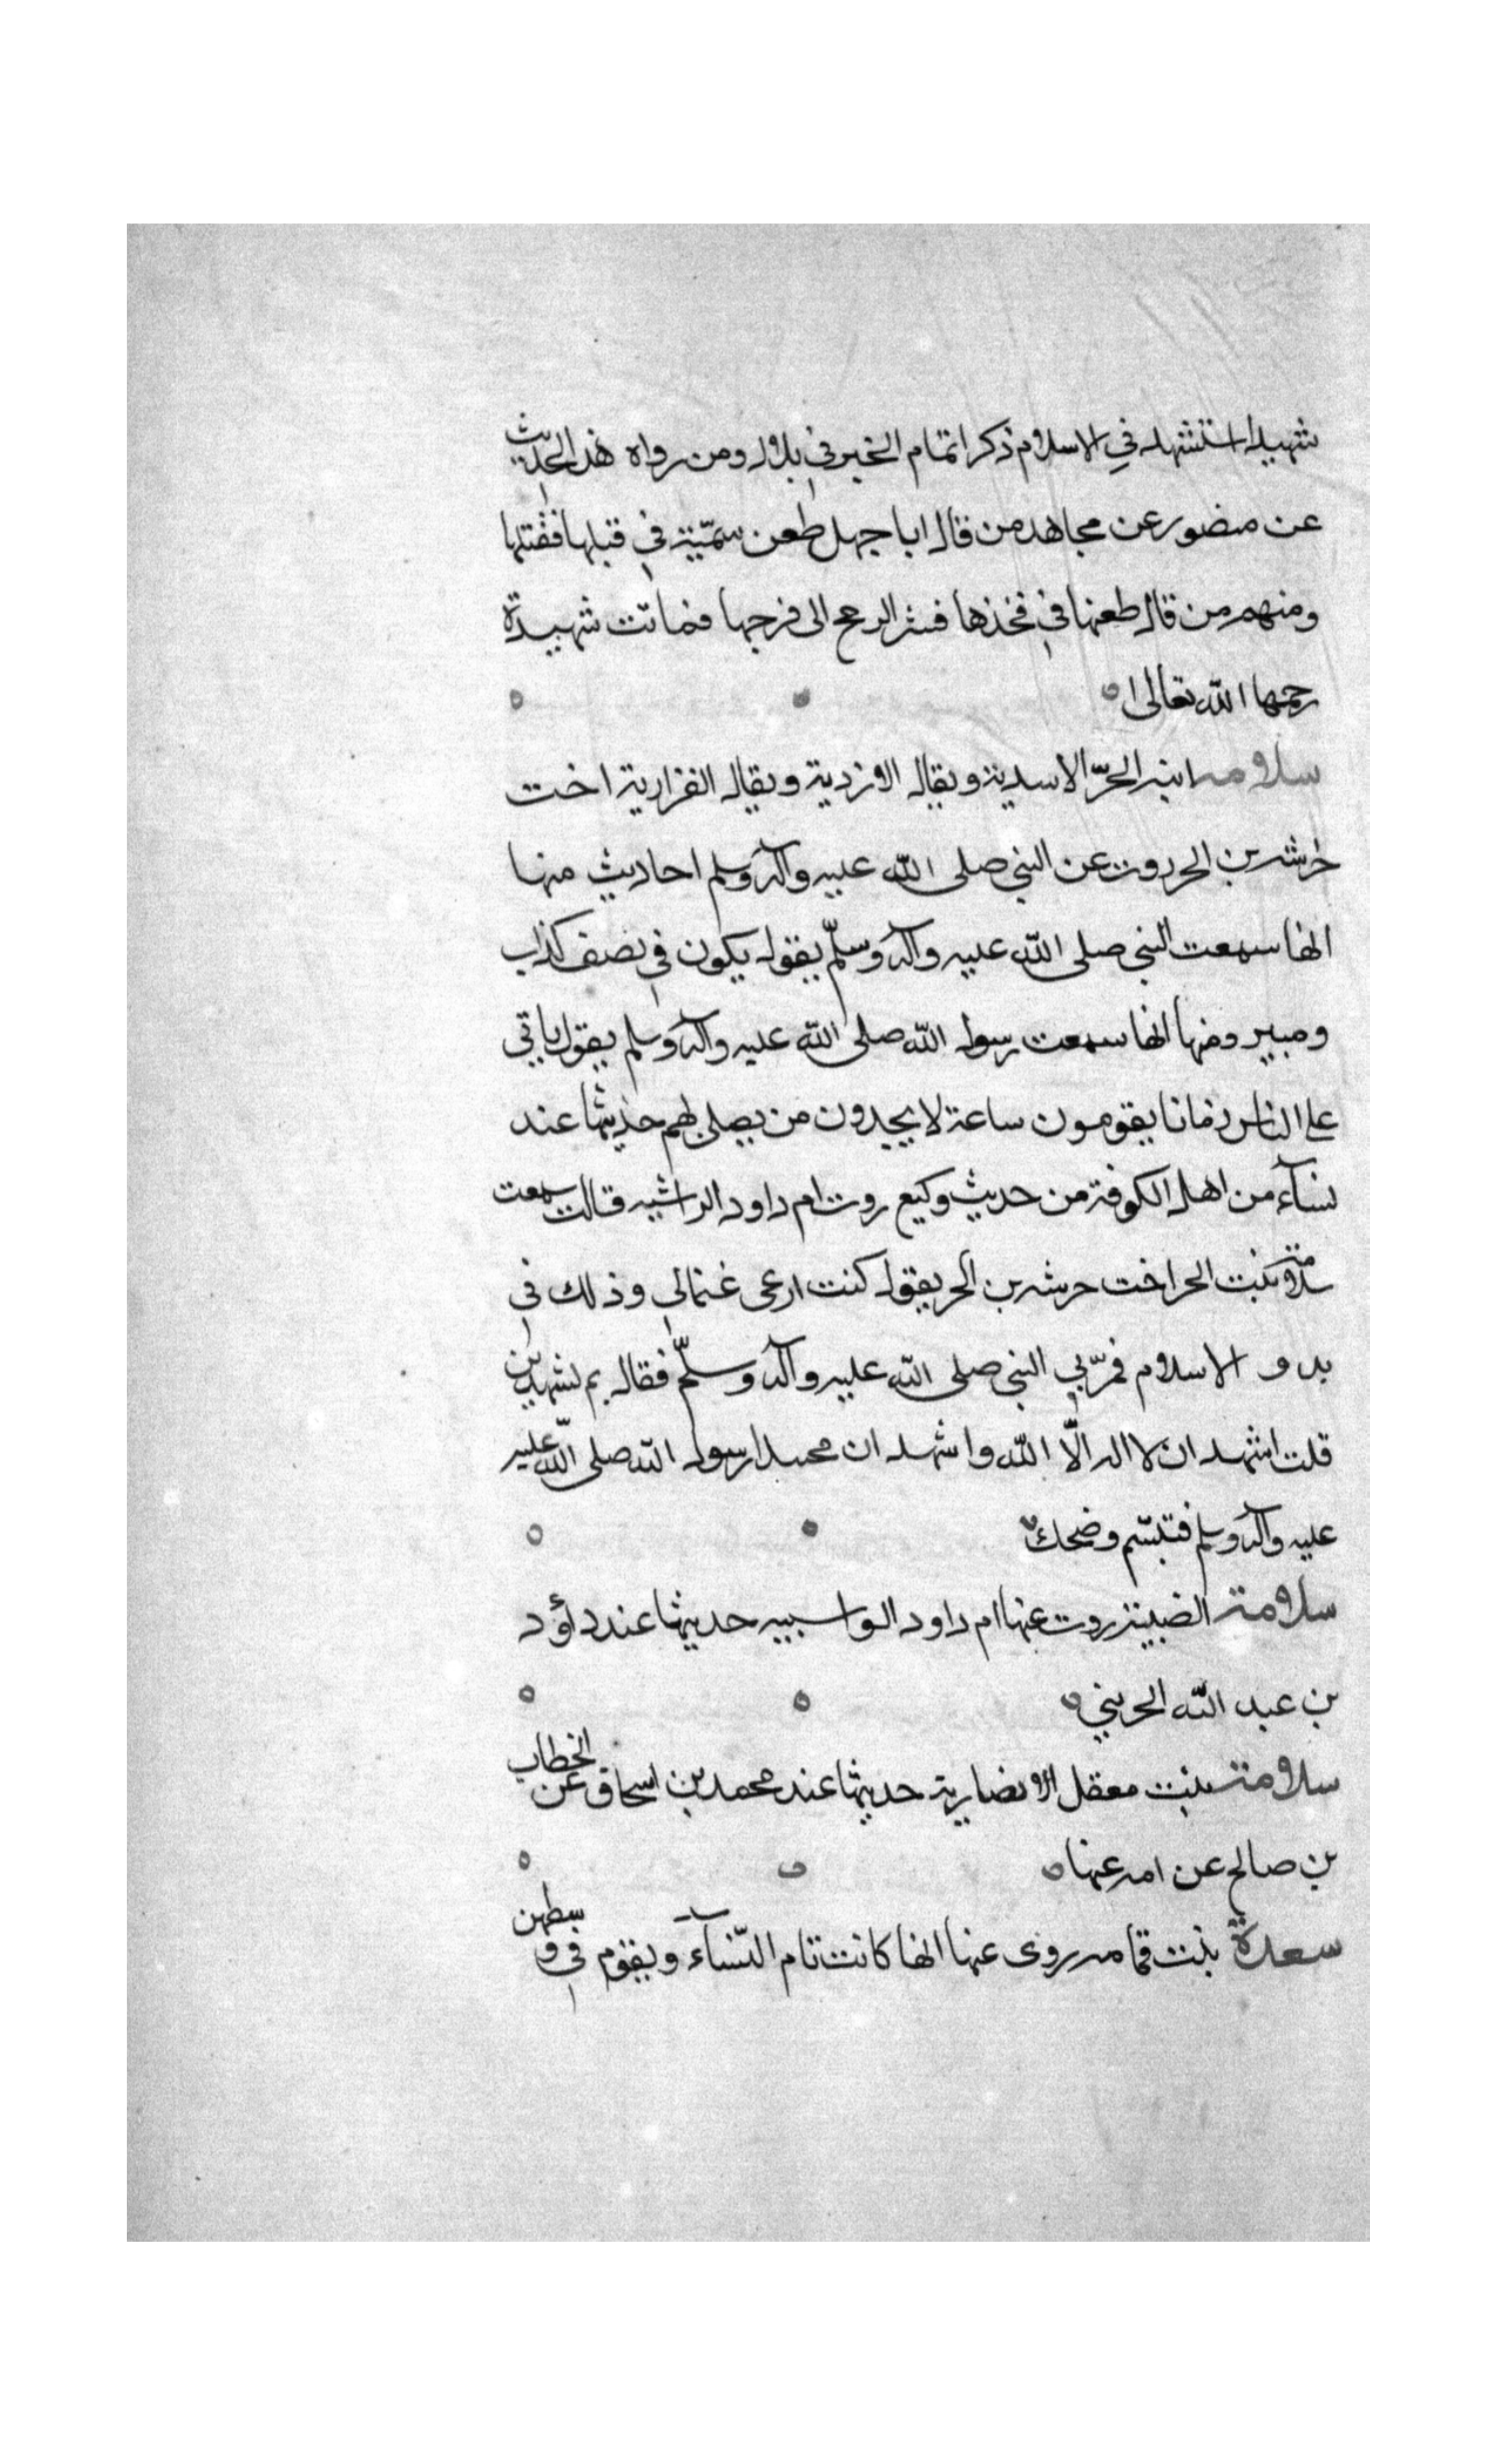 شهيدا استشهد في الاسلام ذكرا تمام الخبر في بلال ومن رواه هذ الحديث
عن منصور عن مجاهد من قال ابا جهل طعن سميّة في قبلها فقتلها
ومنهم من قال طعنها في فخذها فسر الرمح الى فرجها فماتت شهيدة
رحمها الله تعالى
سلامه ابنه الحرّ الاسدية ويقال الازدية ويقال الفزارية اخت
خرشه بن الحر روت عن النبي صلى الله عليه وآله وسلم احاديث منها
انها سمعت النبي صلى الله عليه وآله وسلّم يقول يكون في نصف كذاب
ومبير ومنها انها سمعت رسول الله صلى الله عليه وآله وسلم يقول ياتي
على الناس زمانا يقومون ساعة لا يجدون من يصلي لهم حديثها عند
نسآء من اهل الكوفة من حديث وكيع روت ام داود الراشيه قالت سمعت
سلامة بنت الحر اخت حرشه بن الحر يقول كنت ارعى غنما لي وذلك في
بدو الاسلام فمرّ بي النبي صلى الله عليه وآله وسلّم فقال بم تشهدين
قلت اشهد ان لا اله الّا الله واشهد ان محمدا رسول الله صلى الله عليه
عليه وآله وسلم فتبسّم وضحك
سلامة الضبية روت عنها ام داود الواسبيه حديثها عند داؤد
بن عبد الله الحريني
سلامة بنت معقل الانصارية حديثها عند محمد بن اسحاق عن الخطاب
بن صالح عن امه عنها
سعدة بنت قمامه روى عنها انها كانت تام النّسآء ويقوم في وسطهن